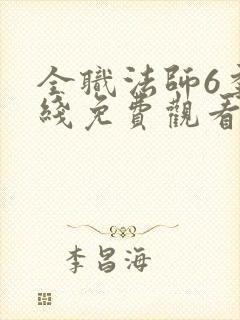 全職法師6季
綫免費觀看
李昌海